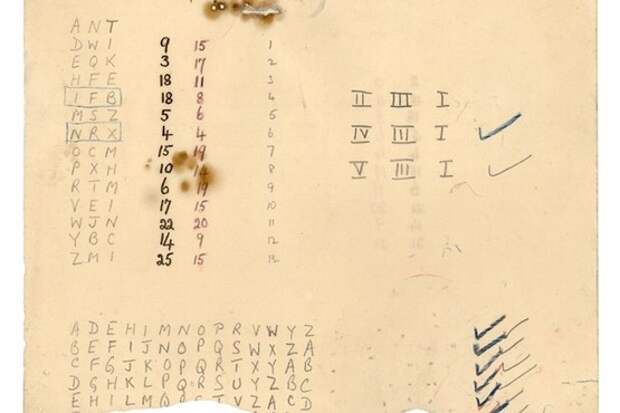 A N T
D W I 9 15 1
E Q K 3 17 2
H F E 18 11 3
I F B 18 8 4 II III I
M S Z 5 6 5
N R X 4 4 6 IV III I
O C M 15 19 7
P X H 10 8 V III I
R T M 6 19 9
V E I 17 15 10
W J N 22 20 11
Y B C 14 9 12
Z M I 25 15 13
A D E H I M N O P R V W Y Z
B E F I J N O P Q S W X Z A
C F G J K O P Q R T X Y A B
D G H K L P Q R S U Y Z B C
E H I L M Q T V Z A C D